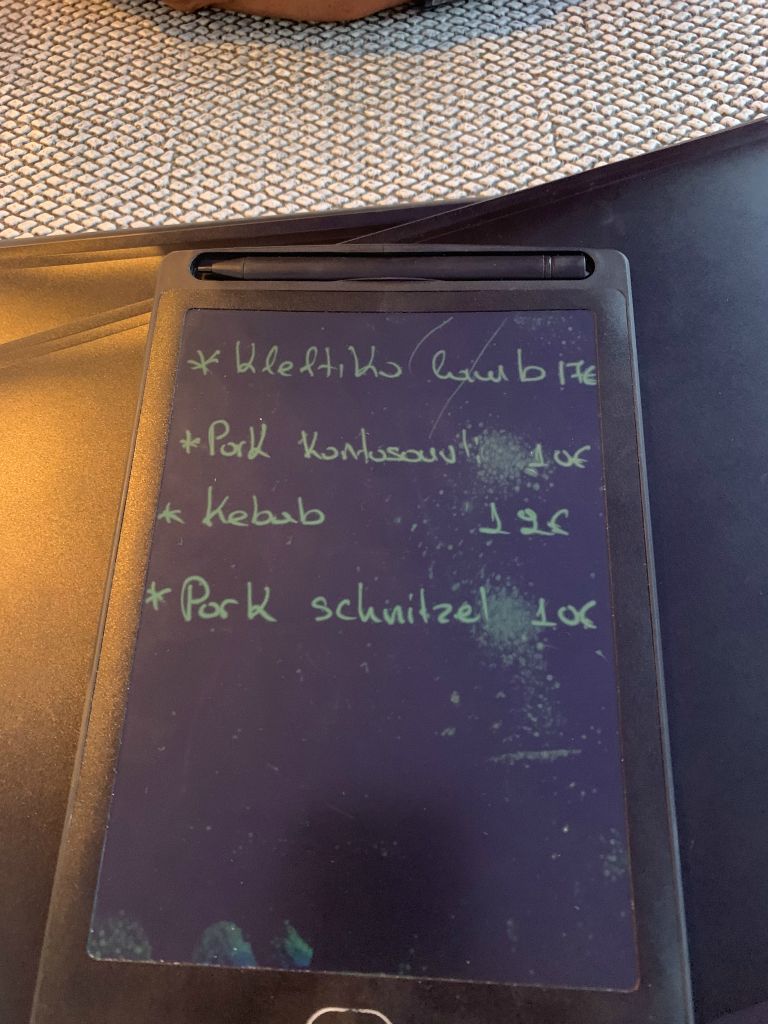 * Kleftiko lamb 17€
* Pork kontosouvli 10€
* Kebab 12€
* Pork schnitzel 10€